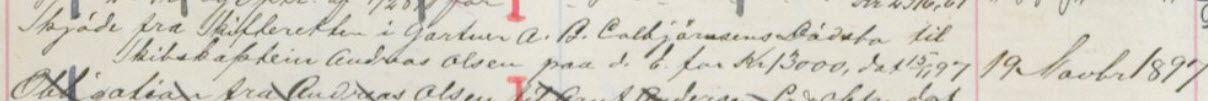 Skjöde fra Skifteretten i Gartner A. B. Colbjörnsens Dödsbo til
Skibskaptein Andreas Olsen paa d. E. for Kr 13000, dat 15/11 97 19 Novbr 1897
Obligation fra Andreas Olsen til